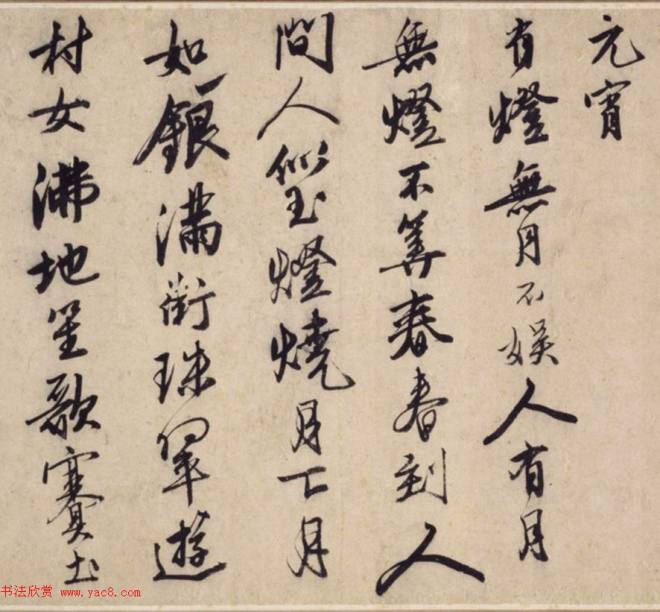 元宵
有燈無月不娛人有月
無燈不筭春春到人
間人似玉燈燒月下月
如銀滿街珠翠遊
村女沸地笙歌賽社
书法欣赏 www.yac8.com